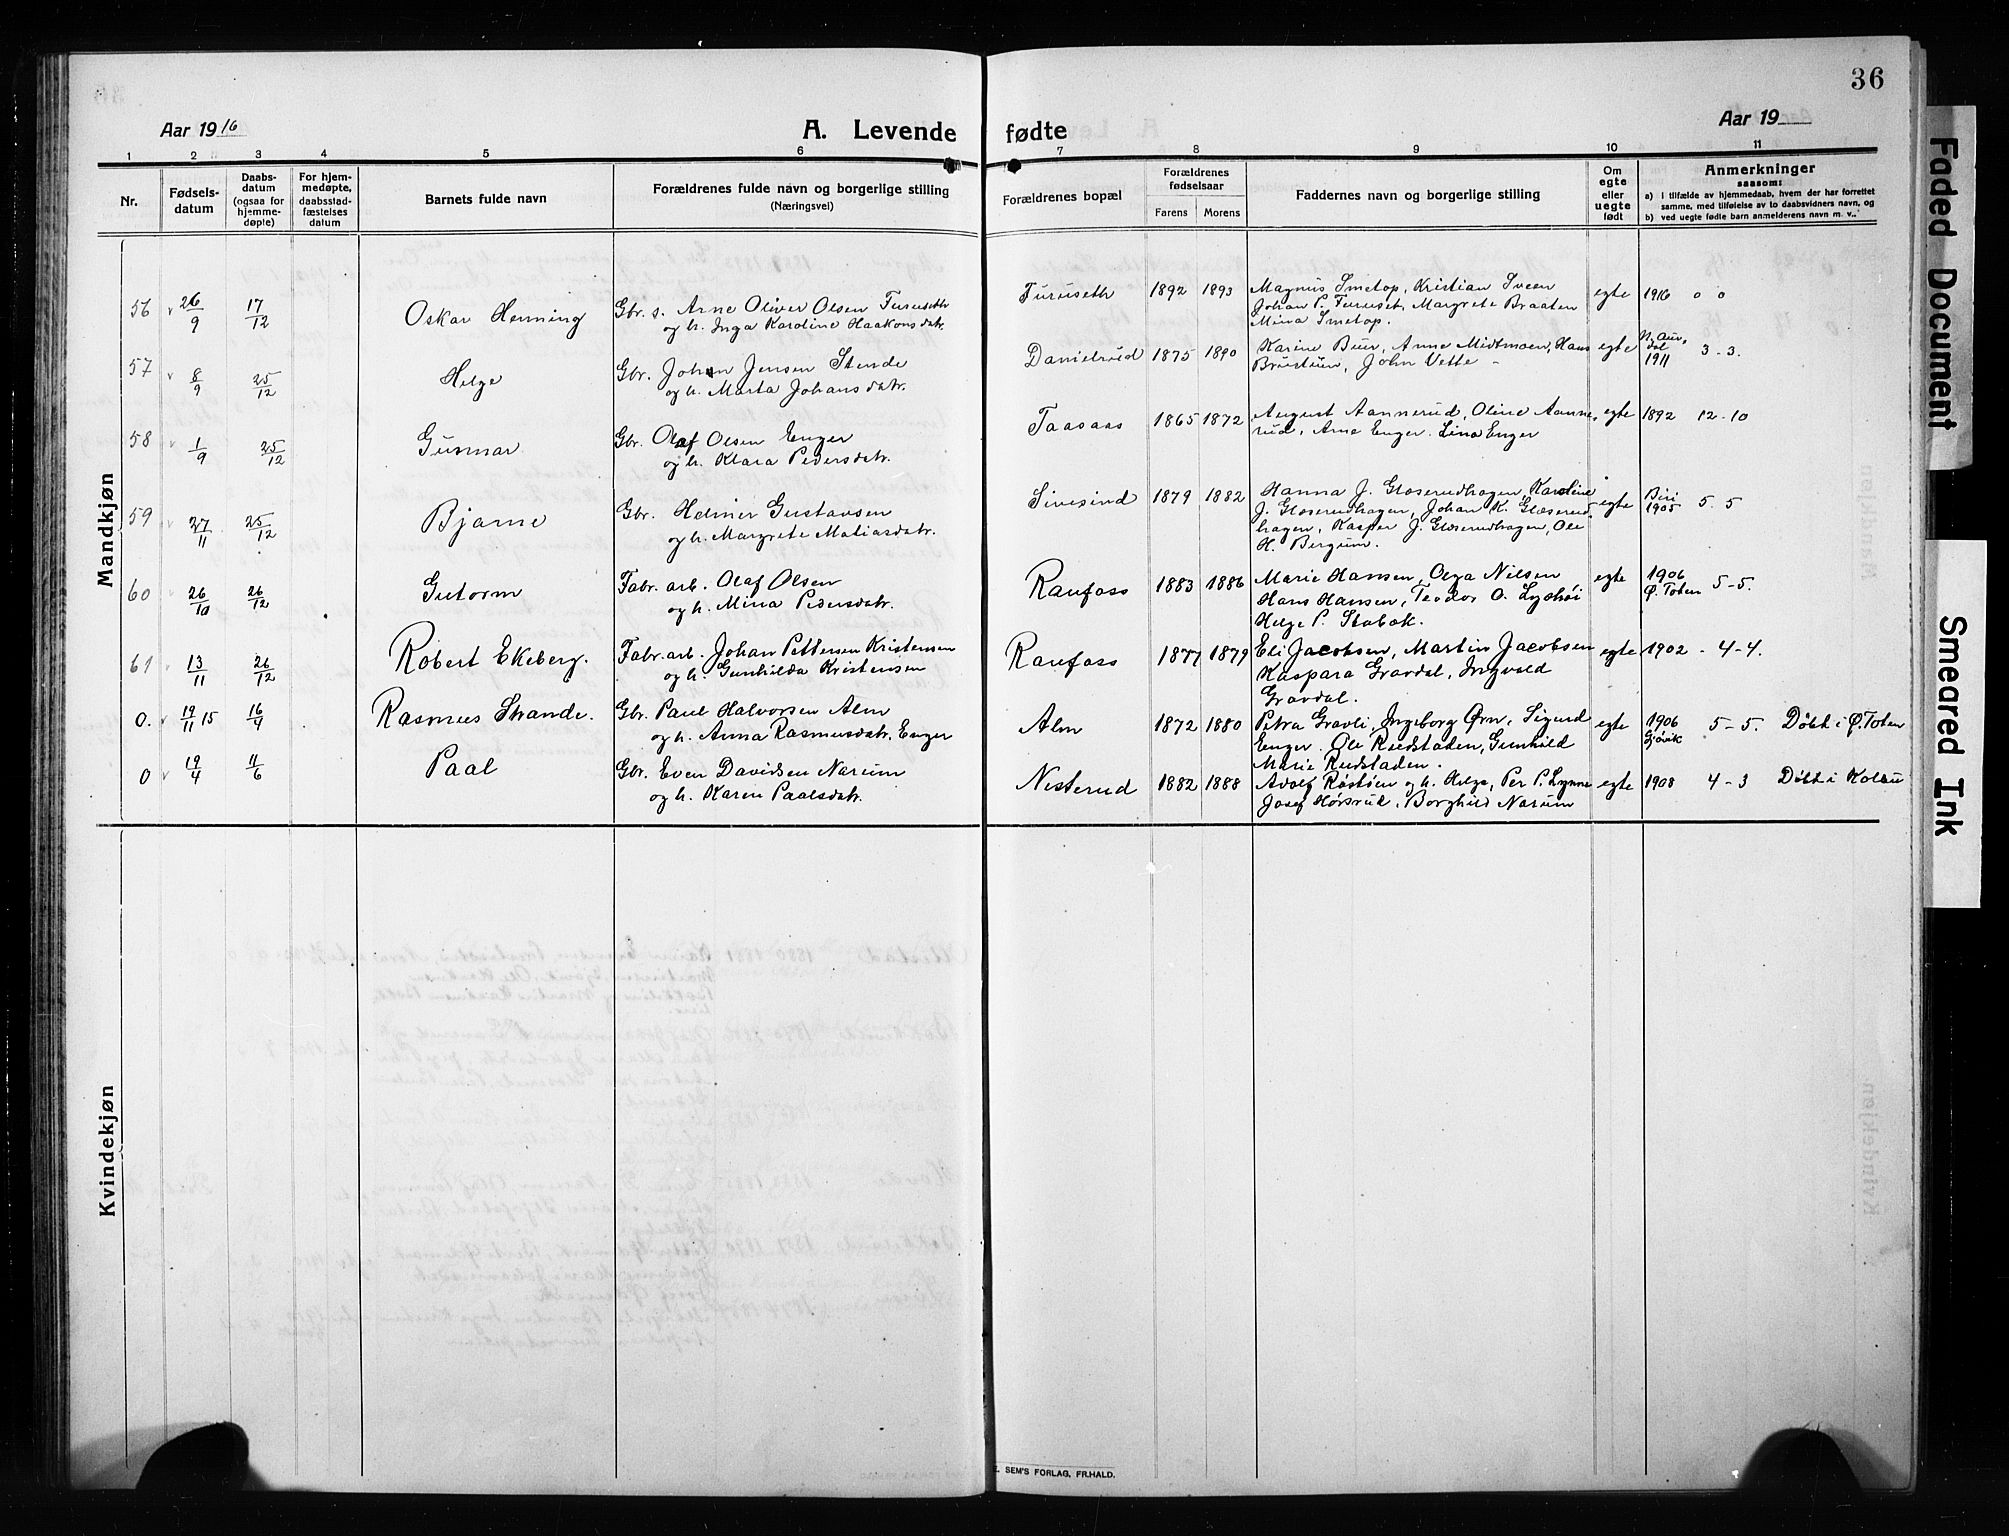 36
Aar 1916
A. Levende fødte
Aar 19
1 2 3 4 5 6 7 8 9 10 11
Nr.
Fødsels-
datum
Daabs-
datum
(ogsaa for
hjemme-
døpte)
For hjem-
medøpte,
daabsstad-
fæstelses
datum
Barnets fulde navn
Forældrenes fulde navn og borgerlige stilling
(Næringsvei)
Forældrenes bopæl
Forældrenes
fødselsaar
Farens Morens
Faddernes navn og borgerlige stilling
Om
egte
eller
uegte
født
Anmerkninger
saasom:
a) i tilfælde av hjemmedaab, hvem der har forrettet
samme, med tilføielse av to daabsvidners navn, og
b) ved uegte fødte barn anmelderens navn m. v.
Mandkjøn
56 26/9 17/12 Oskar Henning Gbr. s. Arne Oliver Olsen Furuseth
og h. Inga Karoline Haakonsdatr.
Furuseth 1892 1893 Magnus Smetop, Kristian Sveen
Johan P. Furuset, Margrete Braaten
Mina Smetop.
egte 1916 0 0
57 8/9 25/12 Helge Gbr. Johan Jensen Stende
og h. Marta Johansdatr.
Danielrud 1875 1890 Karine Buer, Anne Midtmoen, Hans
Brustuen, John Vette -
egte N. Aur-
dal
1911 3-3.
58 1/9 25/12 Gunnar Gbr. Olaf Olsen Enger
og h. Klara Pedersdatr.
Taasaas 1865 1872 August Aannerud, Oline Aanne-
rud, Arne Enger. Lina Enger
egte 1892 12-10
59 27/11 25/12 Bjarne Gbr. Helmer Gustavsen
og h. Margrete Matiasdatr.
Sivesind 1879 1882 Hanna J. Glæserudhagen, Karoline
J. Glæserudhagen, Johan K. Glæserud-
hagen, Kasper J. Glæserudhagen, Ole
H. Bergum.
egte Biri
1905 5-5
60 26/10 26/12 Gutorm Fabr. arb. Olaf Olsen
og h. Mina Pedersdatr.
Raufoss 1883 1886 Marie Hansen, Olga Nilsen
Hans Hansen, Teodor O. Lyshøi
Helge P. Stabæk.
egte 1906
Ø. Toten 5-5.
61 13/11 26/12 Robert Ekeberg. Fabr. arb. Johan Pettersen Kristensen
og h. Gunhilda Kristensen
Raufoss 1877 1879 Eli Jacobsen, Martin Jacobsen
Kaspara Gravdal, Ingvald
Gravdal.
egte 1902 - 4-4.
0. 19/11 15 16/4 Rasmus Strande. Gbr. Paul Halvorsen Alm
og h. Anna Rasmusdatr. Enger
Alm 1872 1880 Petra Gravli, Ingeborg Ørn, Sigurd
Enger. Ole Rudstaden, Gunhild
Marie Rudstaden.
egte 1906
Gjøvik 5-5. Døbt i Ø. Toten
0 19/4 11/6 Paal Gbr. Even Davidsen Narum
og h. Karen Paalsdatr.
Nesterud 1882 1888 Adolf Røstøen og h. Helga, Per P. Lynne
Josef Hørsrud, Borghild Narum
egte 1908 4-3 Døbt i Kolbu
Kvindekjøn
E. SEM'S FORLAG, FR.HALD.
Faded Document
Smeared Ink